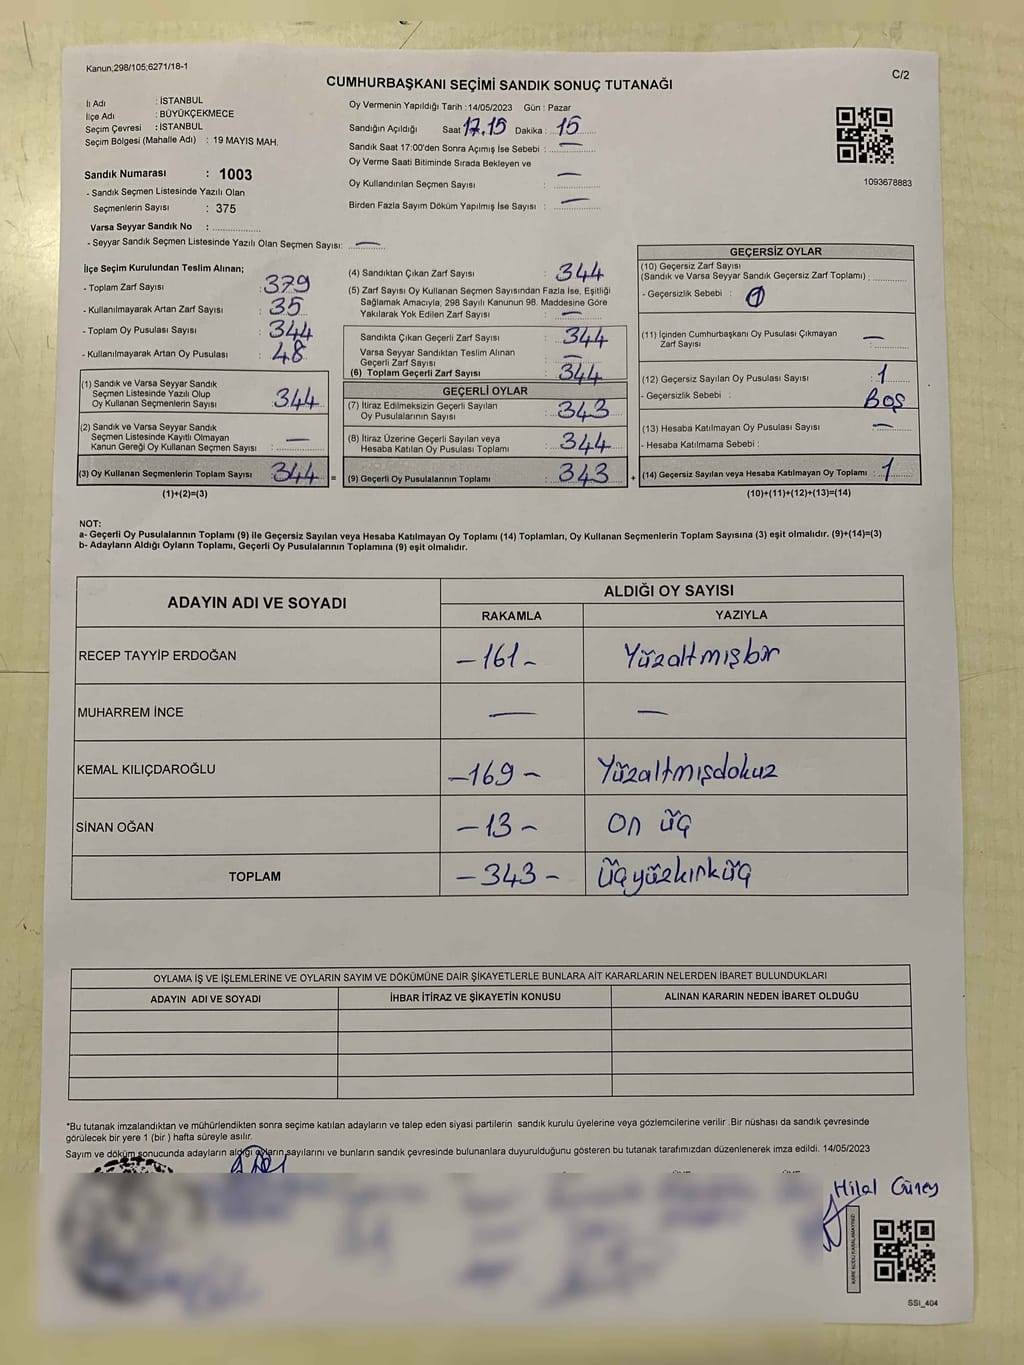 Kanun,298/105;6271/18-1
C/2
CUMHURBAŞKANI SEÇİMİ SANDIK SONUÇ TUTANAĞI
İl Adı : İSTANBUL
İlçe Adı : BÜYÜKÇEKMECE
Seçim Çevresi : İSTANBUL
Seçim Bölgesi (Mahalle Adı) : 19 MAYIS MAH.
Sandık Numarası : 1003
- Sandık Seçmen Listesinde Yazılı Olan
Seçmenlerin Sayısı : 375
Varsa Seyyar Sandık No :
- Seyyar Sandık Seçmen Listesinde Yazılı Olan Seçmen Sayısı: —
Oy Vermenin Yapıldığı Tarih : 14/05/2023 Gün : Pazar
Sandığın Açıldığı Saat 17.15 Dakika : 15
Sandık Saat 17:00'den Sonra Açımış İse Sebebi : —
Oy Verme Saati Bitiminde Sırada Bekleyen ve
Oy Kullandırılan Seçmen Sayısı : —
Birden Fazla Sayım Döküm Yapılmış İse Sayısı : —
1093678883
İlçe Seçim Kurulundan Teslim Alınan;
- Toplam Zarf Sayısı : 379
- Kullanılmayarak Artan Zarf Sayısı : 35
- Toplam Oy Pusulası Sayısı : 344
- Kullanılmayarak Artan Oy Pusulası : 48
(1) Sandık ve Varsa Seyyar Sandık
Seçmen Listesinde Yazılı Olup
Oy Kullanan Seçmenlerin Sayısı : 344
(2) Sandık ve Varsa Seyyar Sandık
Seçmen Listesinde Kayıtlı Olmayan
Kanun Gereği Oy Kullanan Seçmen Sayısı : —
(3) Oy Kullanan Seçmenlerin Toplam Sayısı : 344 =
(1)+(2)=(3)
(4) Sandıktan Çıkan Zarf Sayısı : 344
(5) Zarf Sayısı Oy Kullanan Seçmen Sayısından Fazla İse, Eşitliği
Sağlamak Amacıyla; 298 Sayılı Kanunun 98. Maddesine Göre
Yakılarak Yok Edilen Zarf Sayısı : —
Sandıkta Çıkan Geçerli Zarf Sayısı : 344
Varsa Seyyar Sandıktan Teslim Alınan
Geçerli Zarf Sayısı : —
(6) Toplam Geçerli Zarf Sayısı : 344
GEÇERLİ OYLAR
(7) İtiraz Edilmeksizin Geçerli Sayılan
Oy Pusulalarının Sayısı : 343
(8) İtiraz Üzerine Geçerli Sayılan veya
Hesaba Katılan Oy Pusulası Toplamı : 344
(9) Geçerli Oy Pusulalarının Toplamı : 343 +
GEÇERSİZ OYLAR
(10) Geçersiz Zarf Sayısı
(Sandık ve Varsa Seyyar Sandık Geçersiz Zarf Toplamı) :
- Geçersizlik Sebebi :
(11) İçinden Cumhurbaşkanı Oy Pusulası Çıkmayan
Zarf Sayısı : —
(12) Geçersiz Sayılan Oy Pusulası Sayısı : 1
- Geçersizlik Sebebi : Boş
(13) Hesaba Katılmayan Oy Pusulası Sayısı : —
- Hesaba Katılmama Sebebi :
(14) Geçersiz Sayılan veya Hesaba Katılmayan Oy Toplamı : 1
(10)+(11)+(12)+(13)=(14)
NOT:
a- Geçerli Oy Pusulalarının Toplamı (9) ile Geçersiz Sayılan veya Hesaba Katılmayan Oy Toplamı (14) Toplamları, Oy Kullanan Seçmenlerin Toplam Sayısına (3) eşit olmalıdır. (9)+(14)=(3)
b- Adayların Aldığı Oyların Toplamı, Geçerli Oy Pusulalarının Toplamına (9) eşit olmalıdır.
ADAYIN ADI VE SOYADI ALDIĞI OY SAYISI
RAKAMLA YAZIYLA
RECEP TAYYİP ERDOĞAN -161- Yüzaltmışbir
MUHARREM İNCE — —
KEMAL KILIÇDAROĞLU -169- Yüzaltmışdokuz
SİNAN OĞAN -13- On üç
TOPLAM -343- Üçyüzkırküç
OYLAMA İŞ VE İŞLEMLERİNE VE OYLARIN SAYIM VE DÖKÜMÜNE DAİR ŞİKAYETLERLE BUNLARA AİT KARARLARIN NELERDEN İBARET BULUNDUKLARI
ADAYIN ADI VE SOYADI İHBAR İTİRAZ VE ŞİKAYETİN KONUSU ALINAN KARARIN NEDEN İBARET OLDUĞU
*Bu tutanak imzalandıktan ve mühürlendikten sonra seçime katılan adayların ve talep eden siyasi partilerin sandık kurulu üyelerine veya gözlemcilerine verilir .Bir nüshası da sandık çevresinde
görülecek bir yere 1 (bir ) hafta süreyle asılır.
Sayım ve döküm sonucunda adayların aldığı oyların sayılarını ve bunların sandık çevresinde bulunanlara duyurulduğunu gösteren bu tutanak tarafımızdan düzenlenerek imza edildi. 14/05/2023
Hilal Güney
KARE KODU KARALAMAYINIZ!
SSI_404